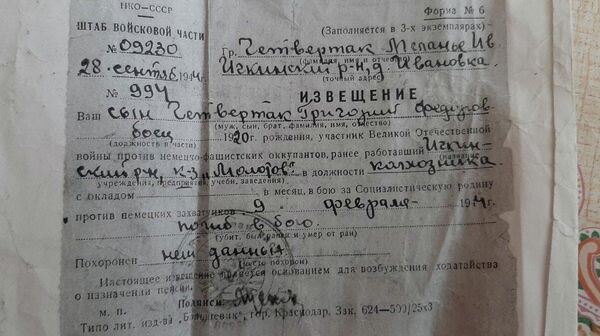 НКО—СССР
Форма № 6
ШТАБ ВОЙСКОВОЙ ЧАСТИ
(Заполняется в 3-х экземплярах)
№ 09230
Гр. Четвертак Меланье Ив
(фамилия, имя и отчество)
28 сентяб 194 г.
р-н, д. Ивановка
(точный адрес)
№ 994
ИЗВЕЩЕНИЕ
Ваш сын Четвертак Григорий Федоров
(муж, сын, брат, фамилия, имя, отчество)
боец 1920 рождения, участник Великой Отечественной
(должность в части)
войны против немецко-фашистских оккупантов, ранее работавший Ичкин-
ский р-н, к-з „Молотов" в должности колхозника
учреждения, предприятия, учебн. заведения)
с окладом в месяц, в бою за Социалистическую родину
против немецких захватчиков 9 февраля 194
погиб в бою.
(убит, был ранен и умер от ран)
Похоронен нет данных
(место похорон)
Настоящее извещение является основанием для возбуждения ходатайства
о назначении пенсии
м. п. Подписи
Типо лит. изд-ва „Большевик", гор. Краснодар. Зак. 624—500/25х3